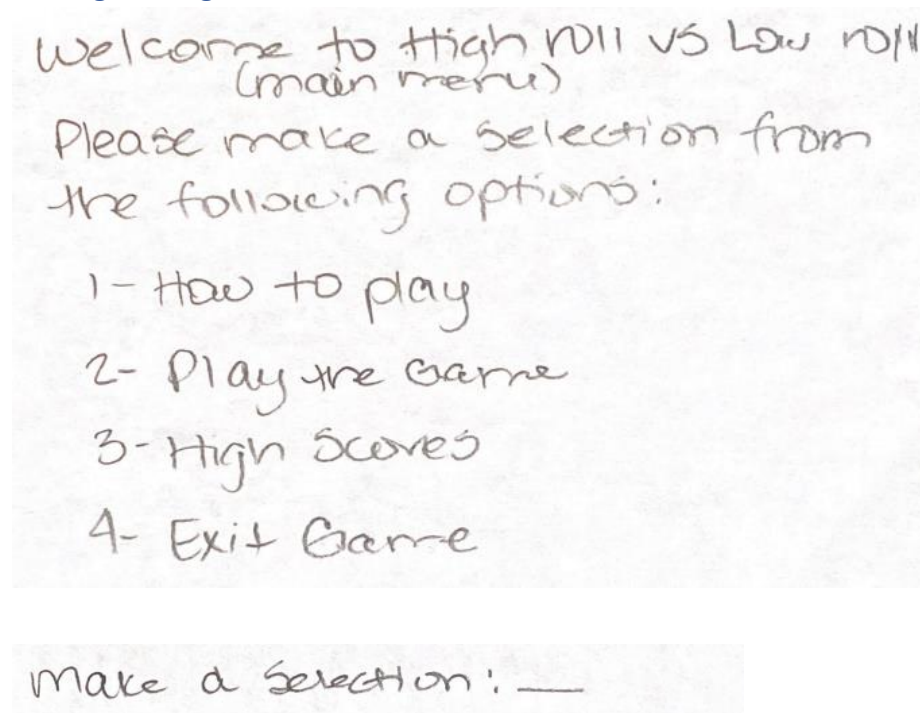 Welcome to High roll vs Low roll
(main menu)
Please make a selection from
the following options:
1- How to play
2- Play the Game
3- High Scores
4- Exit Game
make a selection: __